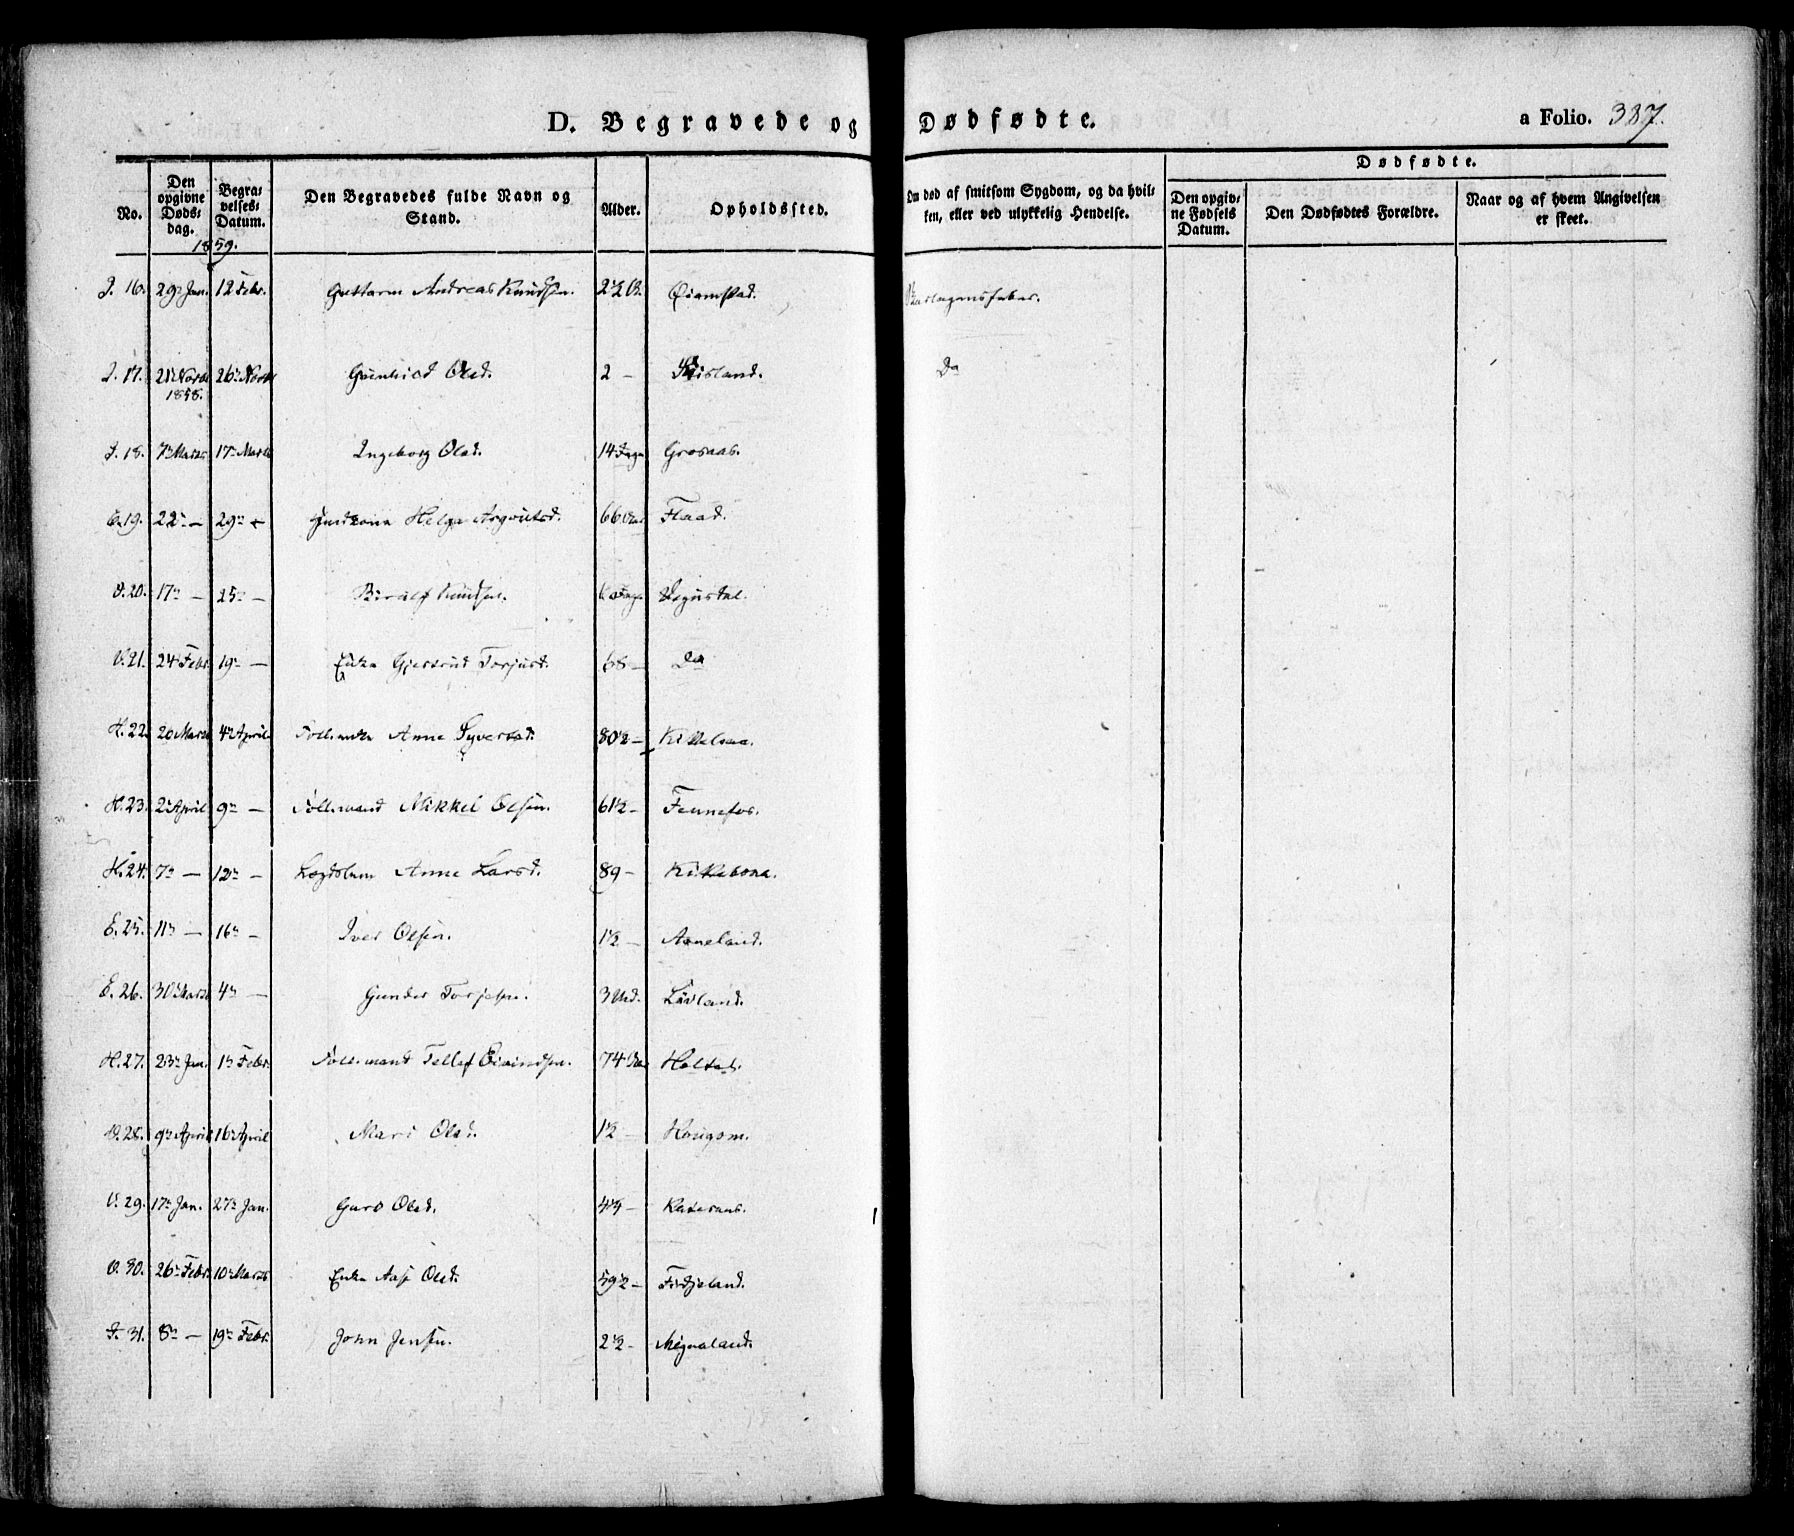 D. Begravede og Dødfødte. a Folio. 387.
No.
Den opgivne Døds-dag.
Begra-velses-Datum.
Den Begravedes fulde Navn og Stand.
Alder.
Opholdssted.
Om død af smitsom Sygdom, og da hvil-ken, eller ved ulykkelig Hendelse.
Dødfødte.
Den opgiv-ne Fødsels Datum.
Den Dødfødtes Forældre.
Naar og af hvem Angivelsen er skeet.
1859.
16. 29 Jan. 12 Febr. Guttorm Andreas Knudsen. 2½ Øiamstad.
17. 21 Novbr 1858. 26 Novbr Gunhild Olsd. 2 – Da
18. 7 Marts 17 Marts Ingeborg Olsd. 14 Dage Grosaas.
19. 22 – 29 – Helga Asgoutsd. 66 Flaad.
V. 20. 17 – 25 – Knudsen. Dage
V. 21. 24 Febr. 19 – Enke Gjertrud Torjusd. 68 – Do
H. 22. 20 Marts 4 April Anne Syversd. 80½ –
H. 23. 2 April 9 – Mikkel Olsen. 61½ – Fennefos.
H. 24. 7 – 12 – Anne Larsd. 89 –
E. 25. 11 – 16 – Iver Olsen. 1½ – Aaneland.
E. 26. 30 Marts 4 – Gunder Torjesen. 3 Lauland.
H. 27. 23 Jan. 1 Febr. Tellef Eivindsen. 74
V. 28. 9 April 16 April Mari Olsd. 1½ – Hougom.
V. 29. 17 Jan. 27 Jan. Guro Olsd.
V. 30. 26 Febr. 10 Marts Enke Olsd. 59½ – Fidjeland.
31. 8 – 19 Febr. John Jensen. 2½ –